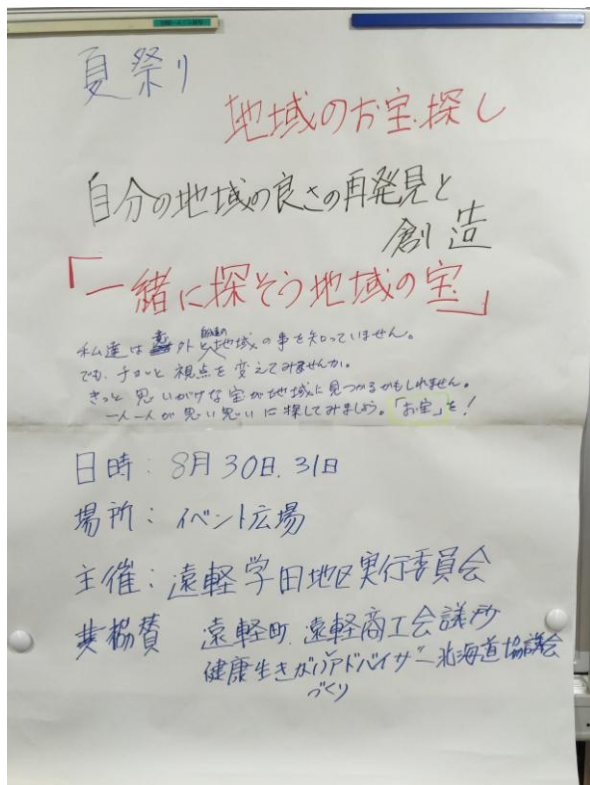 夏祭り
地域のお宝探し
自分の地域の良さの再発見と
創造
「一緒に探そう地域の宝」
私達は意外と自分の地域の事を知っていません。
でも、チョッと視点を変えてみませんか。
きっと思いがけな宝が地域に見つかるかもしれません。
一人一人が思い思いに探してみましょう。「お宝」を!
日時:8月30日.31日
場所:イベント広場
主催:遠軽学田地区実行委員会
共協賛 遠軽町.遠軽商工会議所
健康生きがいづくりアドバイザー北海道協議会